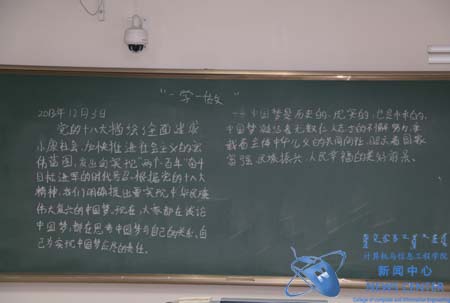 "一学一做
2013年12月3日
党的十八大描绘全面建成
小康社会,加快推进社会主义的宏
伟蓝图,发出向实现"两个百年"奋斗
目标进军的时代号召。根据党的十八大
精神,我们明确提出要实现中华民族
伟大复兴的中国梦。现在,大家都在谈论
中国梦,都在思考中国梦与自己的关系、自
己为实现中国梦应尽的责任。
中国梦是历史的、现实的,也是未来的。
中国梦凝结着无数仁人志士的不懈努力,承
载着全体中华儿女的共同向往,昭示着国家
富强、民族振兴、人民幸福的美好前景。
计算机与信息工程学院
新闻中心
NEWS CENTER
College of computer and information Engineering